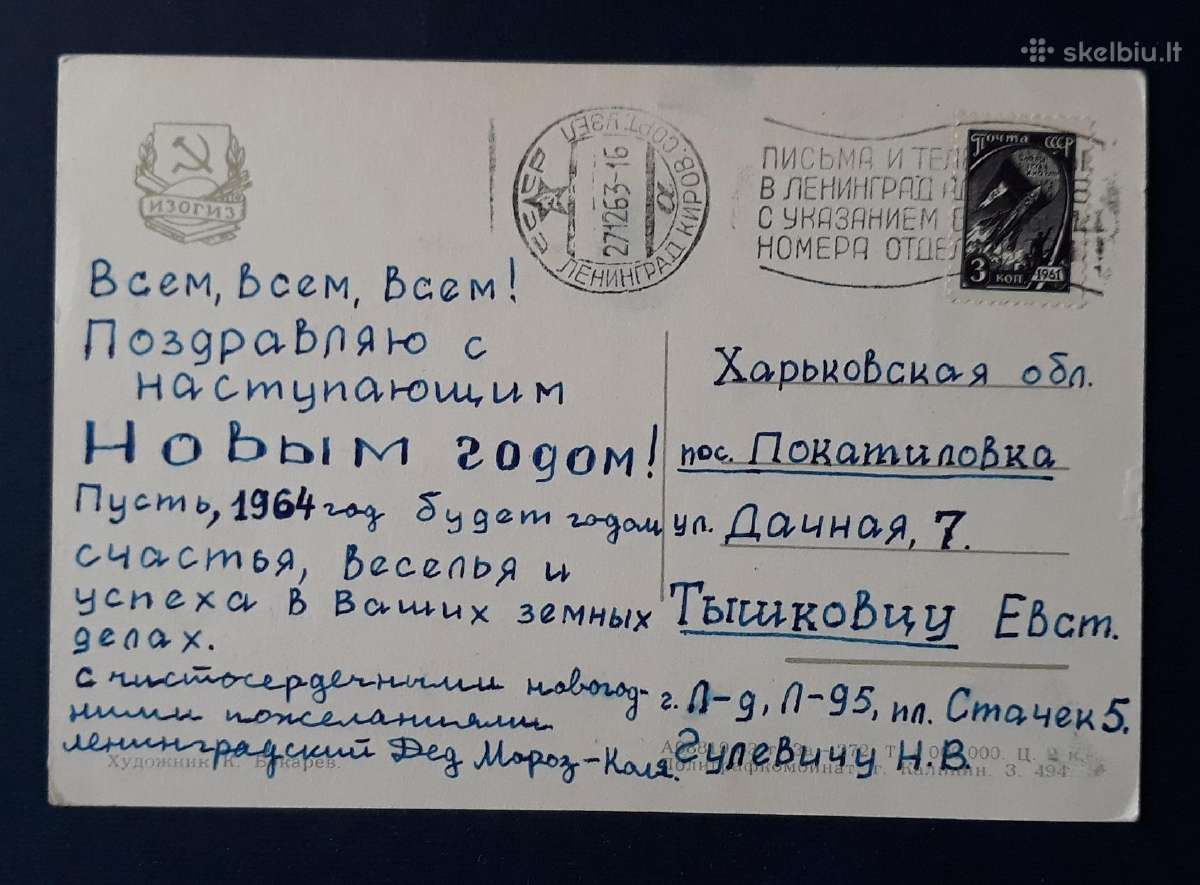 skelbiu.lt
ИЗОГИЗ
СССР
ЛЕНИНГРАД КИРОВ. СОРТ. УЗЕЛ
271263-16
а
ПИСЬМА И ТЕЛ
В ЛЕНИНГРАД
С УКАЗАНИЕМ
НОМЕРА ОТДЕЛ
Почта СССР
3 коп. 1961
Всем, Всем, Всем!
Поздравляю с
наступающим
Новым годом!
Пусть, 1964 год будет годом
счастья, веселья и
успеха в Ваших земных
делах.
С чистосердечными новогод-
ними пожеланиями
ленинградский Дед Мороз-Коля.
Художник К. Бокарев.
Харьковская обл.
пос. Покатиловка
ул. Дачная, 7.
Тышковцу Евст.
г. Л-д, Л-95, пл. Стачек 5.
Гулевичу Н.В.
000. Ц. 2 к.
Полиграфкомбинат г. Калинин. З. 494